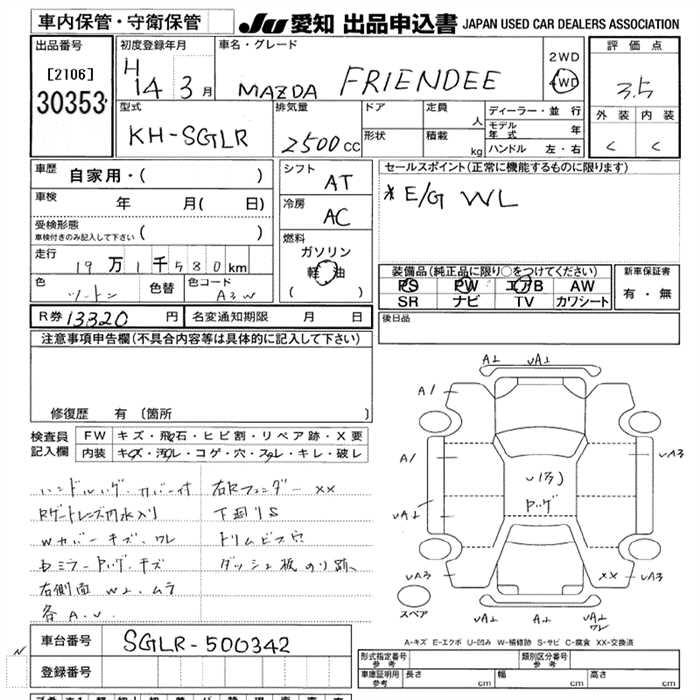 車内保管・守衛保管
JU 愛知 出品申込書 JAPAN USED CAR DEALERS ASSOCIATION
出品番号
[2106]
30353
初度登録年月
H 14 3 月
車名・グレード
MAZDA FRIENDEE
2WD
4WD
評価点
3.5
外装 内装
C C
型式
KH-SGLR
排気量
2500 CC
ドア
形状
定員 人
積載 kg
ディーラー・並行
モデル年式 年
ハンドル 左・右
車歴
自家用・( )
車検 年 月( 日)
受検形態
車検付きのみ記入して下さい ( )
走行
19万1千580km
色 ツートン
色替
色コード A3W
シフト
AT
冷房
AC
燃料
ガソリン
軽油
( )
セールスポイント(正常に機能するものに限ります)
* E/G WL
装備品(純正品に限り○をつけてください)
PS PW エアB AW
SR ナビ TV カワシート
新車保証書
有・無
R券 13320 円
名変通知期限 月 日
後日品
注意事項申告欄(不具合内容等は具体的に記入して下さい)
修復歴 有 〔箇所 〕
検査員記入欄
FW キズ・飛石・ヒビ割・リペア跡・X要
内装 キズ・汚れ・コゲ・穴・スレ・キレ・破レ
ハンドルハゲ・カバー付 右Rフェンダー XX
Rゲートレンズ内水入り 下廻りS
Wカバーキズ、ワレ トリムビス穴
ダッシュ板のり跡、
右側面 W⊥.ムラ
各A.U.
A⊥ UA⊥
A1
A1
UA3
UA⊥
UA3
XX
UA3
UA⊥
A⊥
UA⊥
ワレ
スペア
A-キズ E-エクボ U-凹み W-補修跡 S-サビ C-腐食 XX-交換済
車台番号 SGLR-500342
N
登録番号
形式指定番号 参考
類別区分番号 参考
車庫証明用 参考 長さ cm 幅 cm 高さ cm